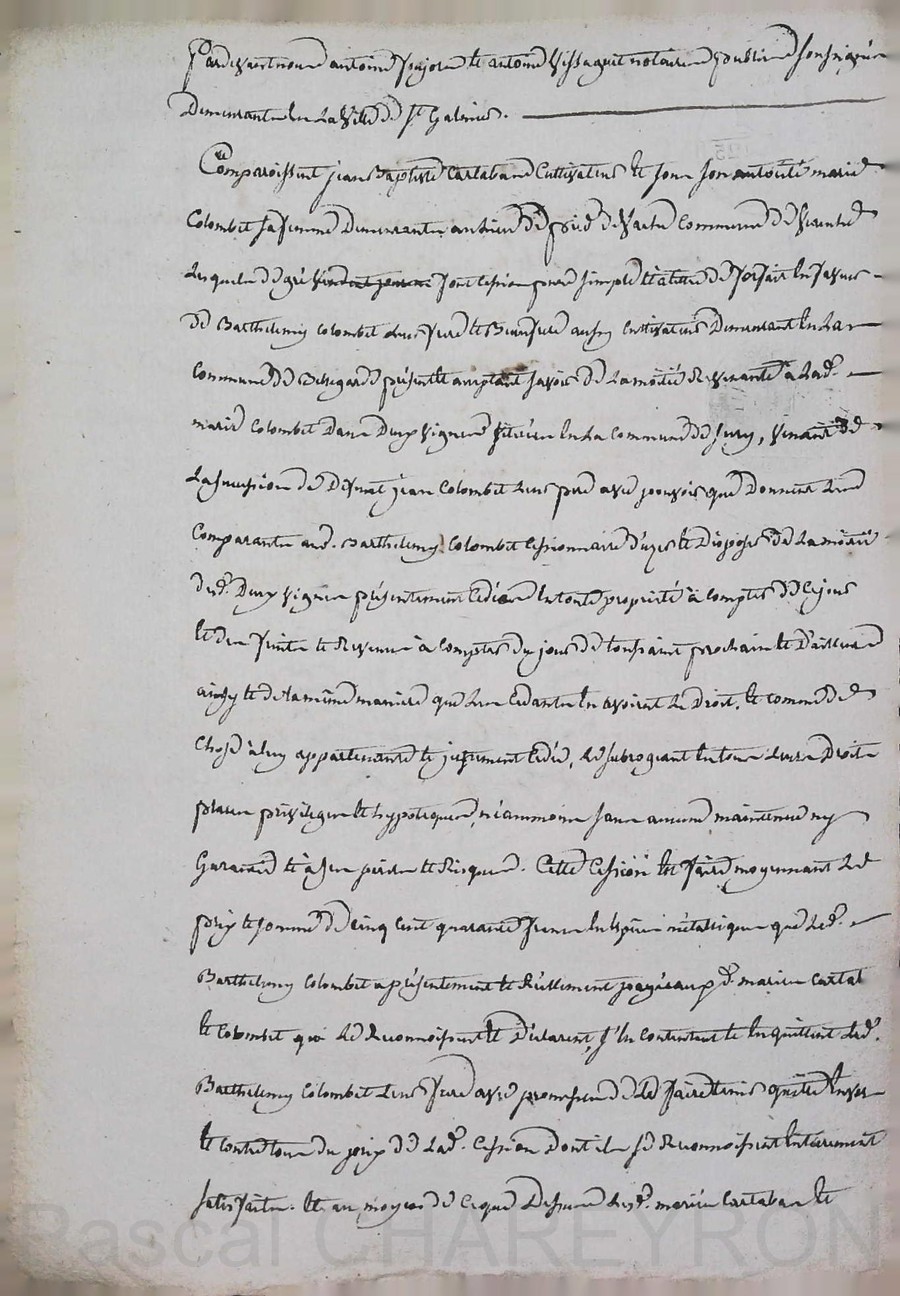 Pardevant nous antoine pajon et antoine Vissaguet notaires publics soussignés
Demeurants en La Ville de St Galmier.
Comparoissent jean Baptiste Cartal Cultivateur et sous son autorité marie
Colombet sa femme Demeurants au lieu de commune de
Lesquels de gré vendent font cession pure simple et à titre de forfait en faveur
de Barthelemy Colombet leur frere et Beaufrere aussy cultivateur Demeurant en La
Commune de Bellegarde présent et acceptant savoir de La moitié Revenante à Lade.
marie Colombet Dans Deux Vignes situées en La Commune de Sury, venant de
La Succession de Défunt jean Colombet Leur pere avec pouvoir que Donnent Les
Comparants aud. Barthelemy Colombet Cessionnaire d'uzer et Disposer de La moitié
desd. Deux vignes présentement Cédées en toute propriété à compter de Ce jour
et des fruits et Revenus à Compter du jour de toussaint prochain et D'ailleurs
ainsy et de La même maniere que Les Cedants en avoient Le Droit, et comme de
Chose à luy appartenante et justement Cédée, Le Subrogeant en tous Leurs Droits
places privileges et hypoteques, néammoins sans aucune maintenue ny
Garantie et à ses perils et Risques. Cette Cession est faite moyennant Le
prix et somme de Cinq Cent quarante francs en espèces métaliques que Led.
Barthelemy Colombet a présentement et Réellement payé auxd. mariés Cartal
et Colombet qui Le Reconnoissent et Déclarent, s'en contentent et en quittent Led.
Barthelemy Colombet Leur frere avec promesse de Le faire tenir quitte envers
et contre tous du prix de Lade. Cession Dont ils se Reconnoissent entierement
satisfaits. Et au moyen de Ce que Dessus Lesd. mariés Cartal et
Pascal CHAREYRON